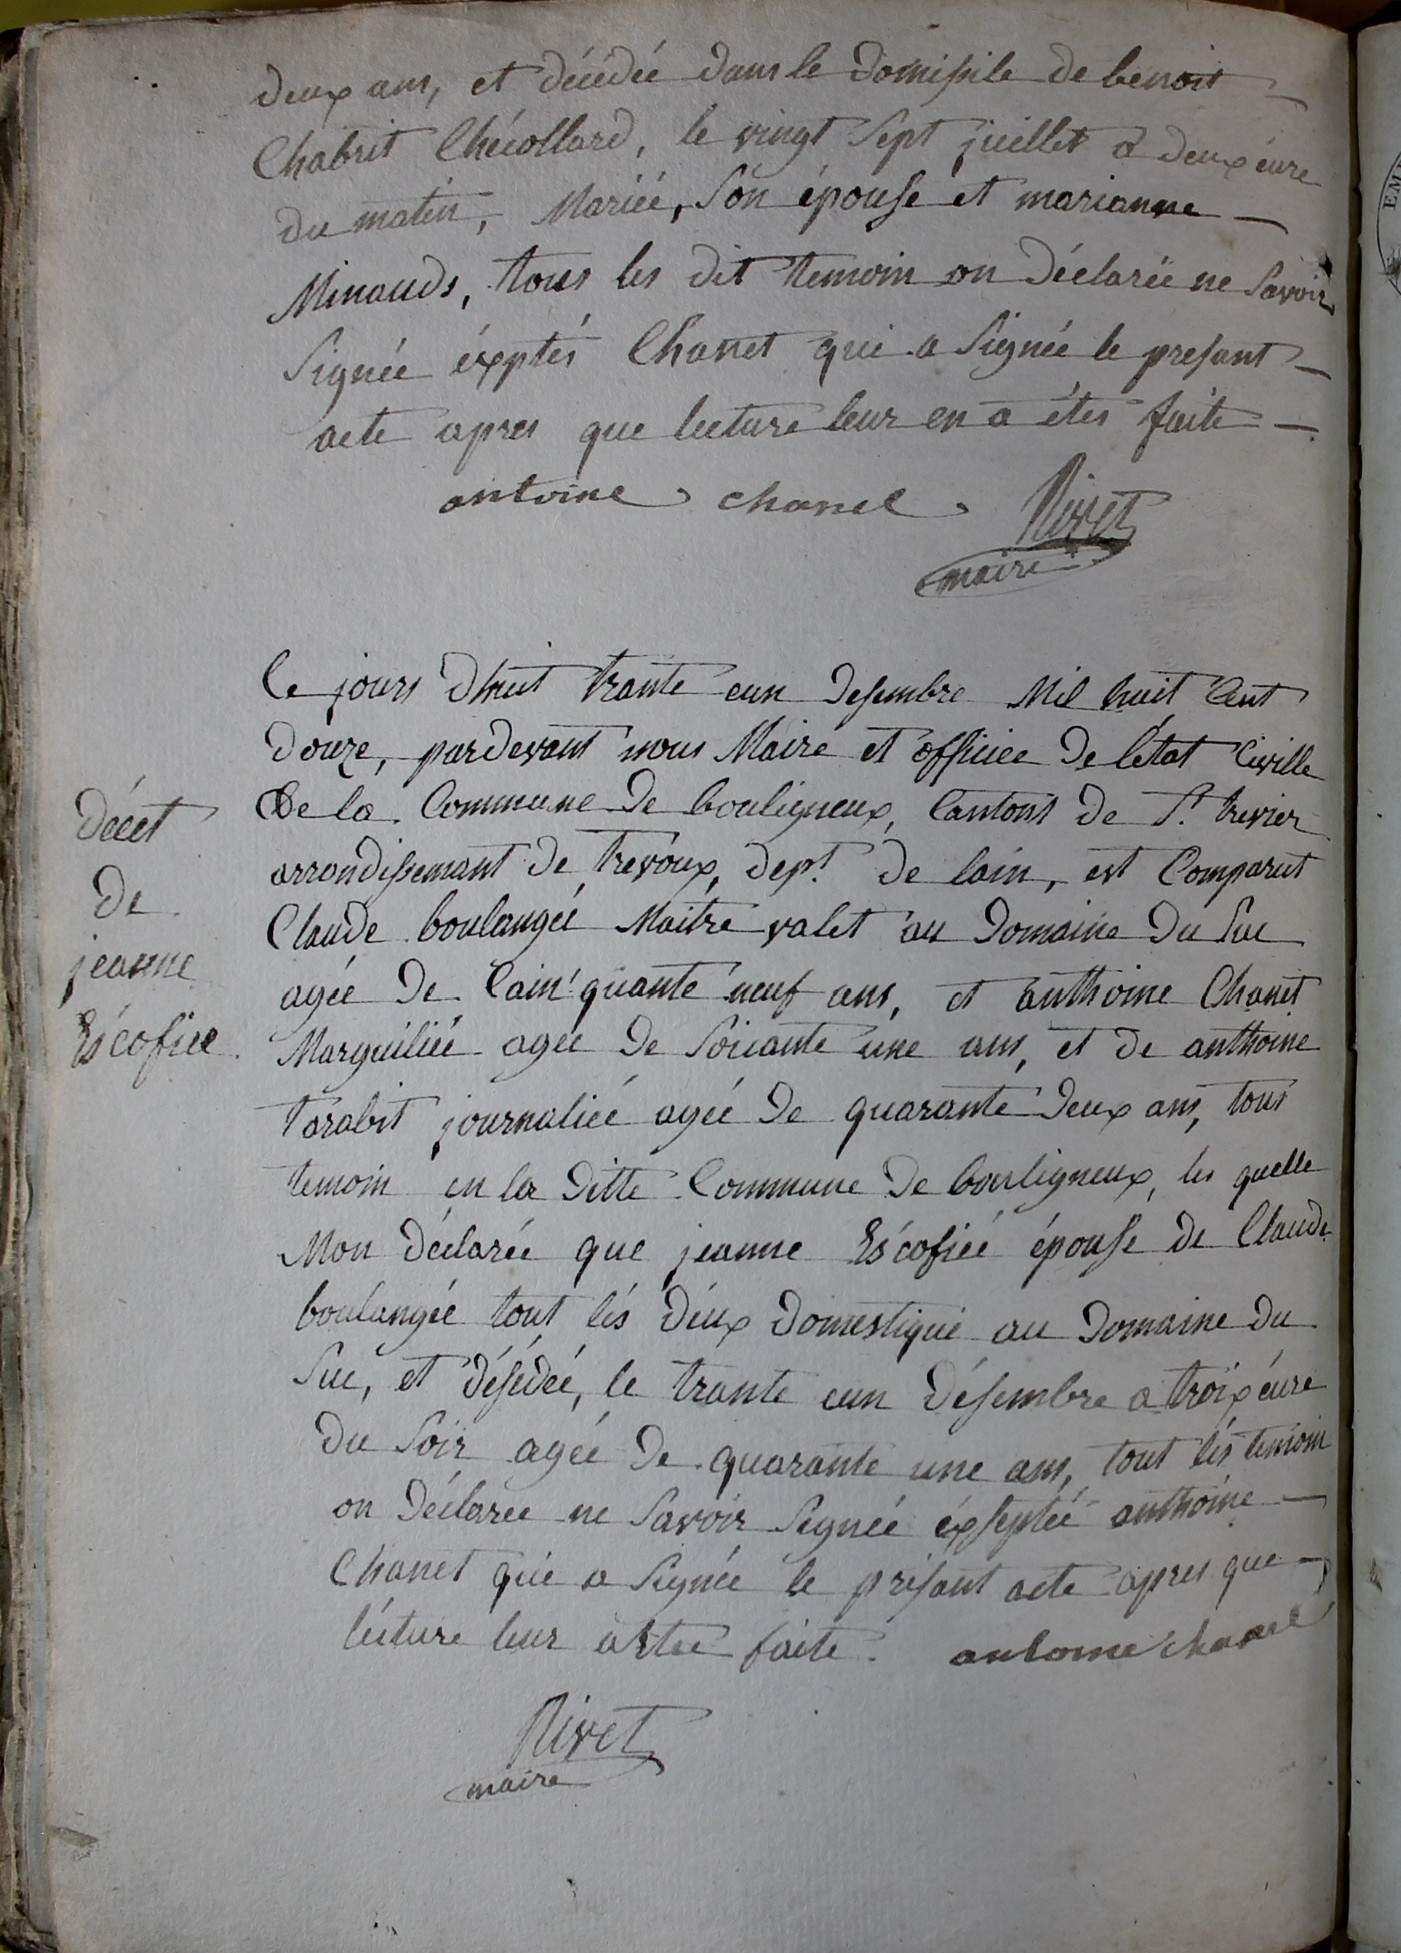 deux ans, et décédée dans le domissile de benoit
Chabrit Chécollard, le vingt Sept juillet à deux éure
du matin, Mariéé, Son épouse et marianne
Minauds, tous les dit temoin on déclaréé ne Savoir
Signéé éxptés Chanet qui a Signéé le presant
acte apres que lecture leur en a étés faite
antoine chanel Rivet
maire
Ce jours dhuit trante eun desembre Mil huit Cent
douze, pardevant nous Maire et officiee de létat Civille
De la Commune de bouligneux, Cantons de St. trevier
arrondissemant de trevoux, dept. de lain, est Comparut
Claude boulangéé Maitre valet au domaine du Suc
agéé de Cain'quante neuf ans, et anthoine Chanet
Marguilléé agéé de Soicante une ans, et de anthoine
tarabit journaliéé agéé de quarante deux ans, tous
temoin en la ditte Commune de bouligneux, les quelle
Mon déclaréé que jeanne Escofiéé épouse de Claude
boulangéé tout lés déux domestique au domaine du
Suc, et désédéé, le trante eun désembre a troix éure
du Soir agéé de quarante une ans, tout lés temoin
on déclaréé ne Savoir Signéé éxseptéé anthoine
Chanet qui a Signéé le présant acte apres que
lécture leur a étéé faite. antoine chanel
Rivet
maire
décèt
de
jeanne
Escofiee
EM